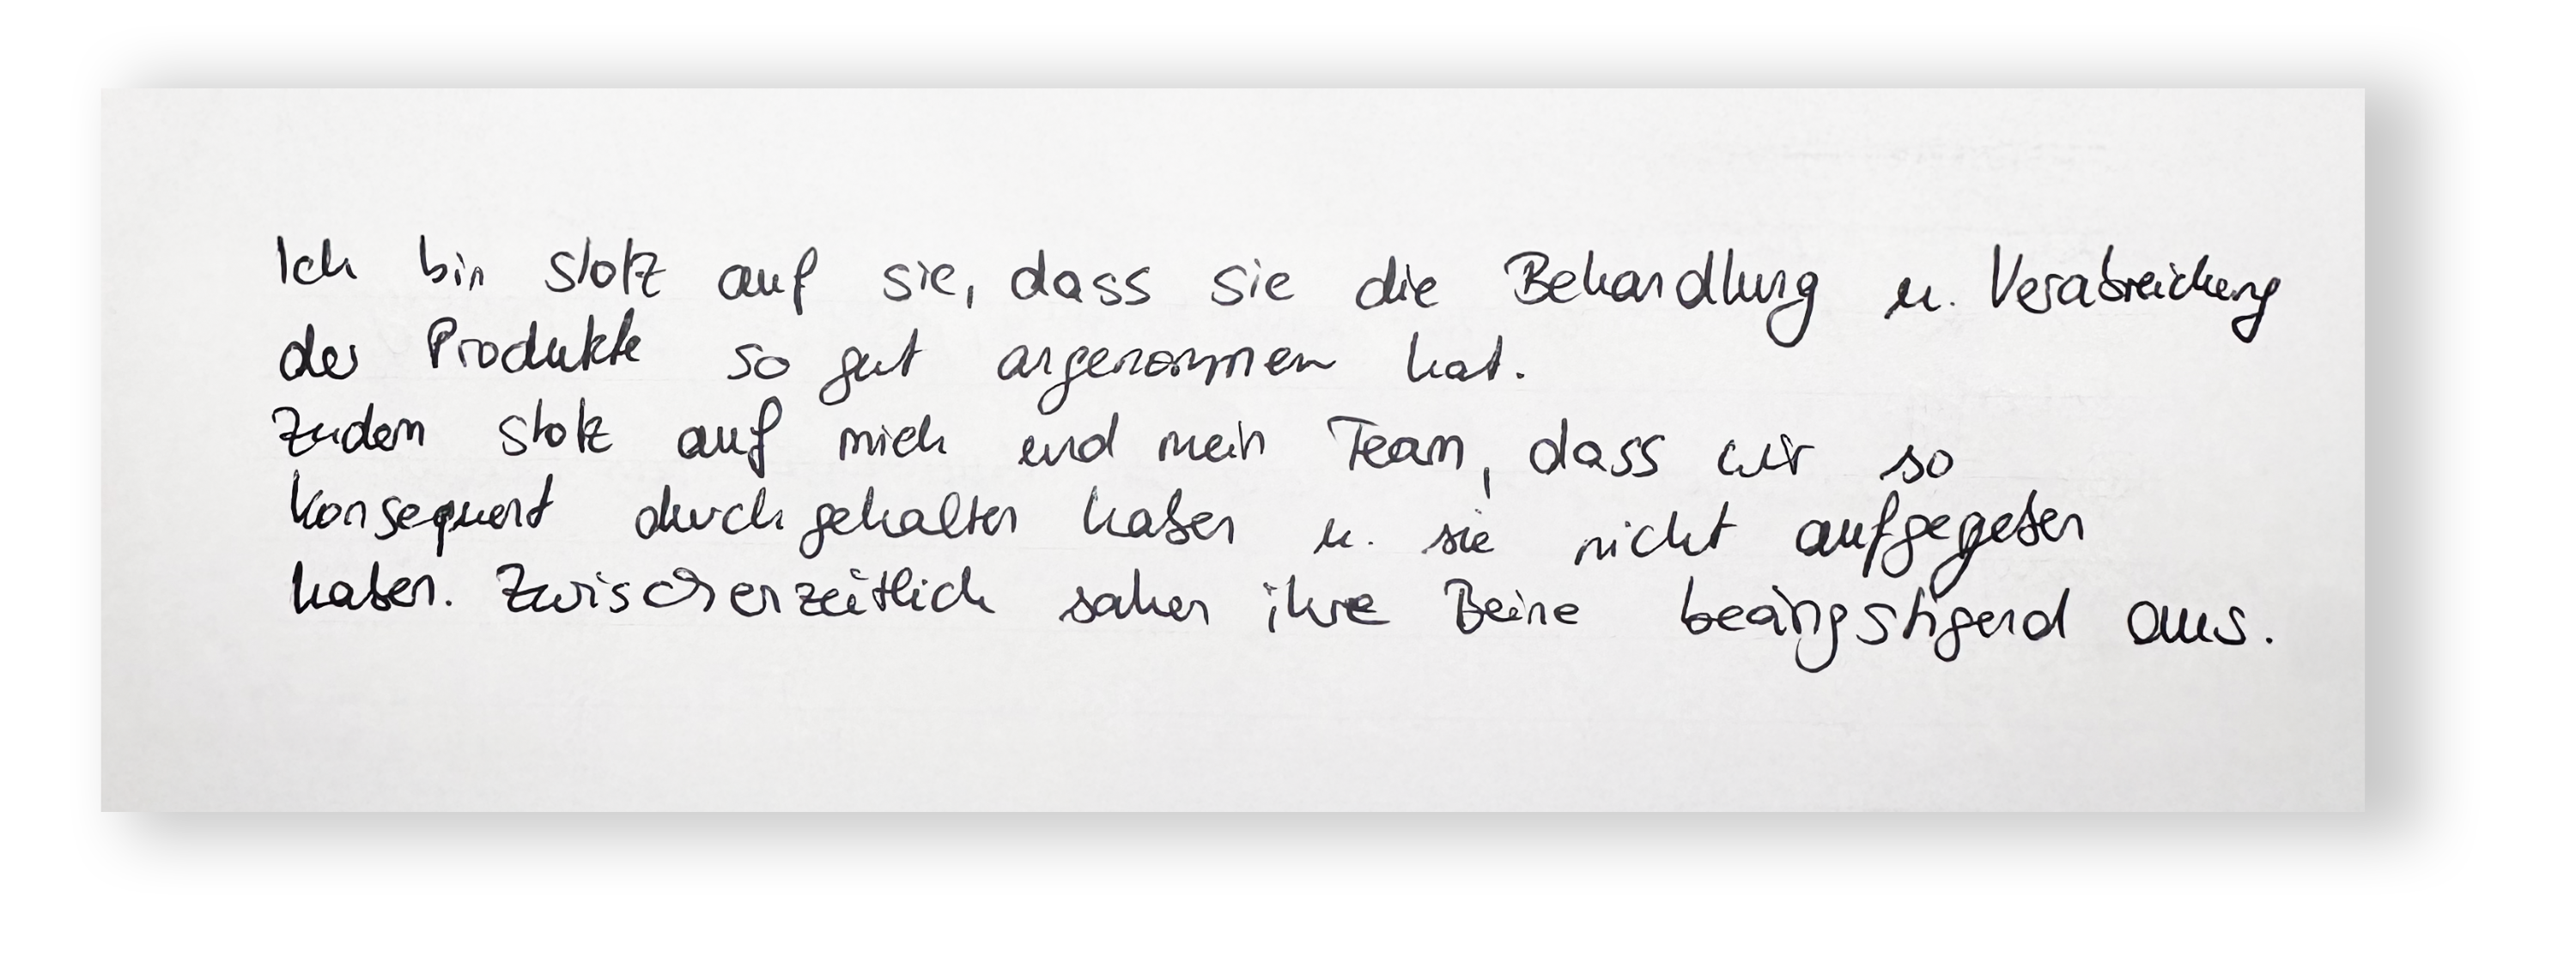 Ich bin stolz auf sie, dass sie die Behandlung u. Verabreichung
der Produkte so gut angenommen hat.
Zudem stolz auf mich und mein Team, dass wir so
konsequent durchgehalten haben u. sie nicht aufgegeben
haben. Zwischenzeitlich sahen ihre Beine beängstigend aus.